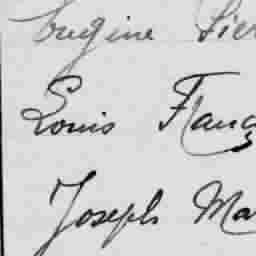 Eugène Pier
Louis Franç
Joseph Ma